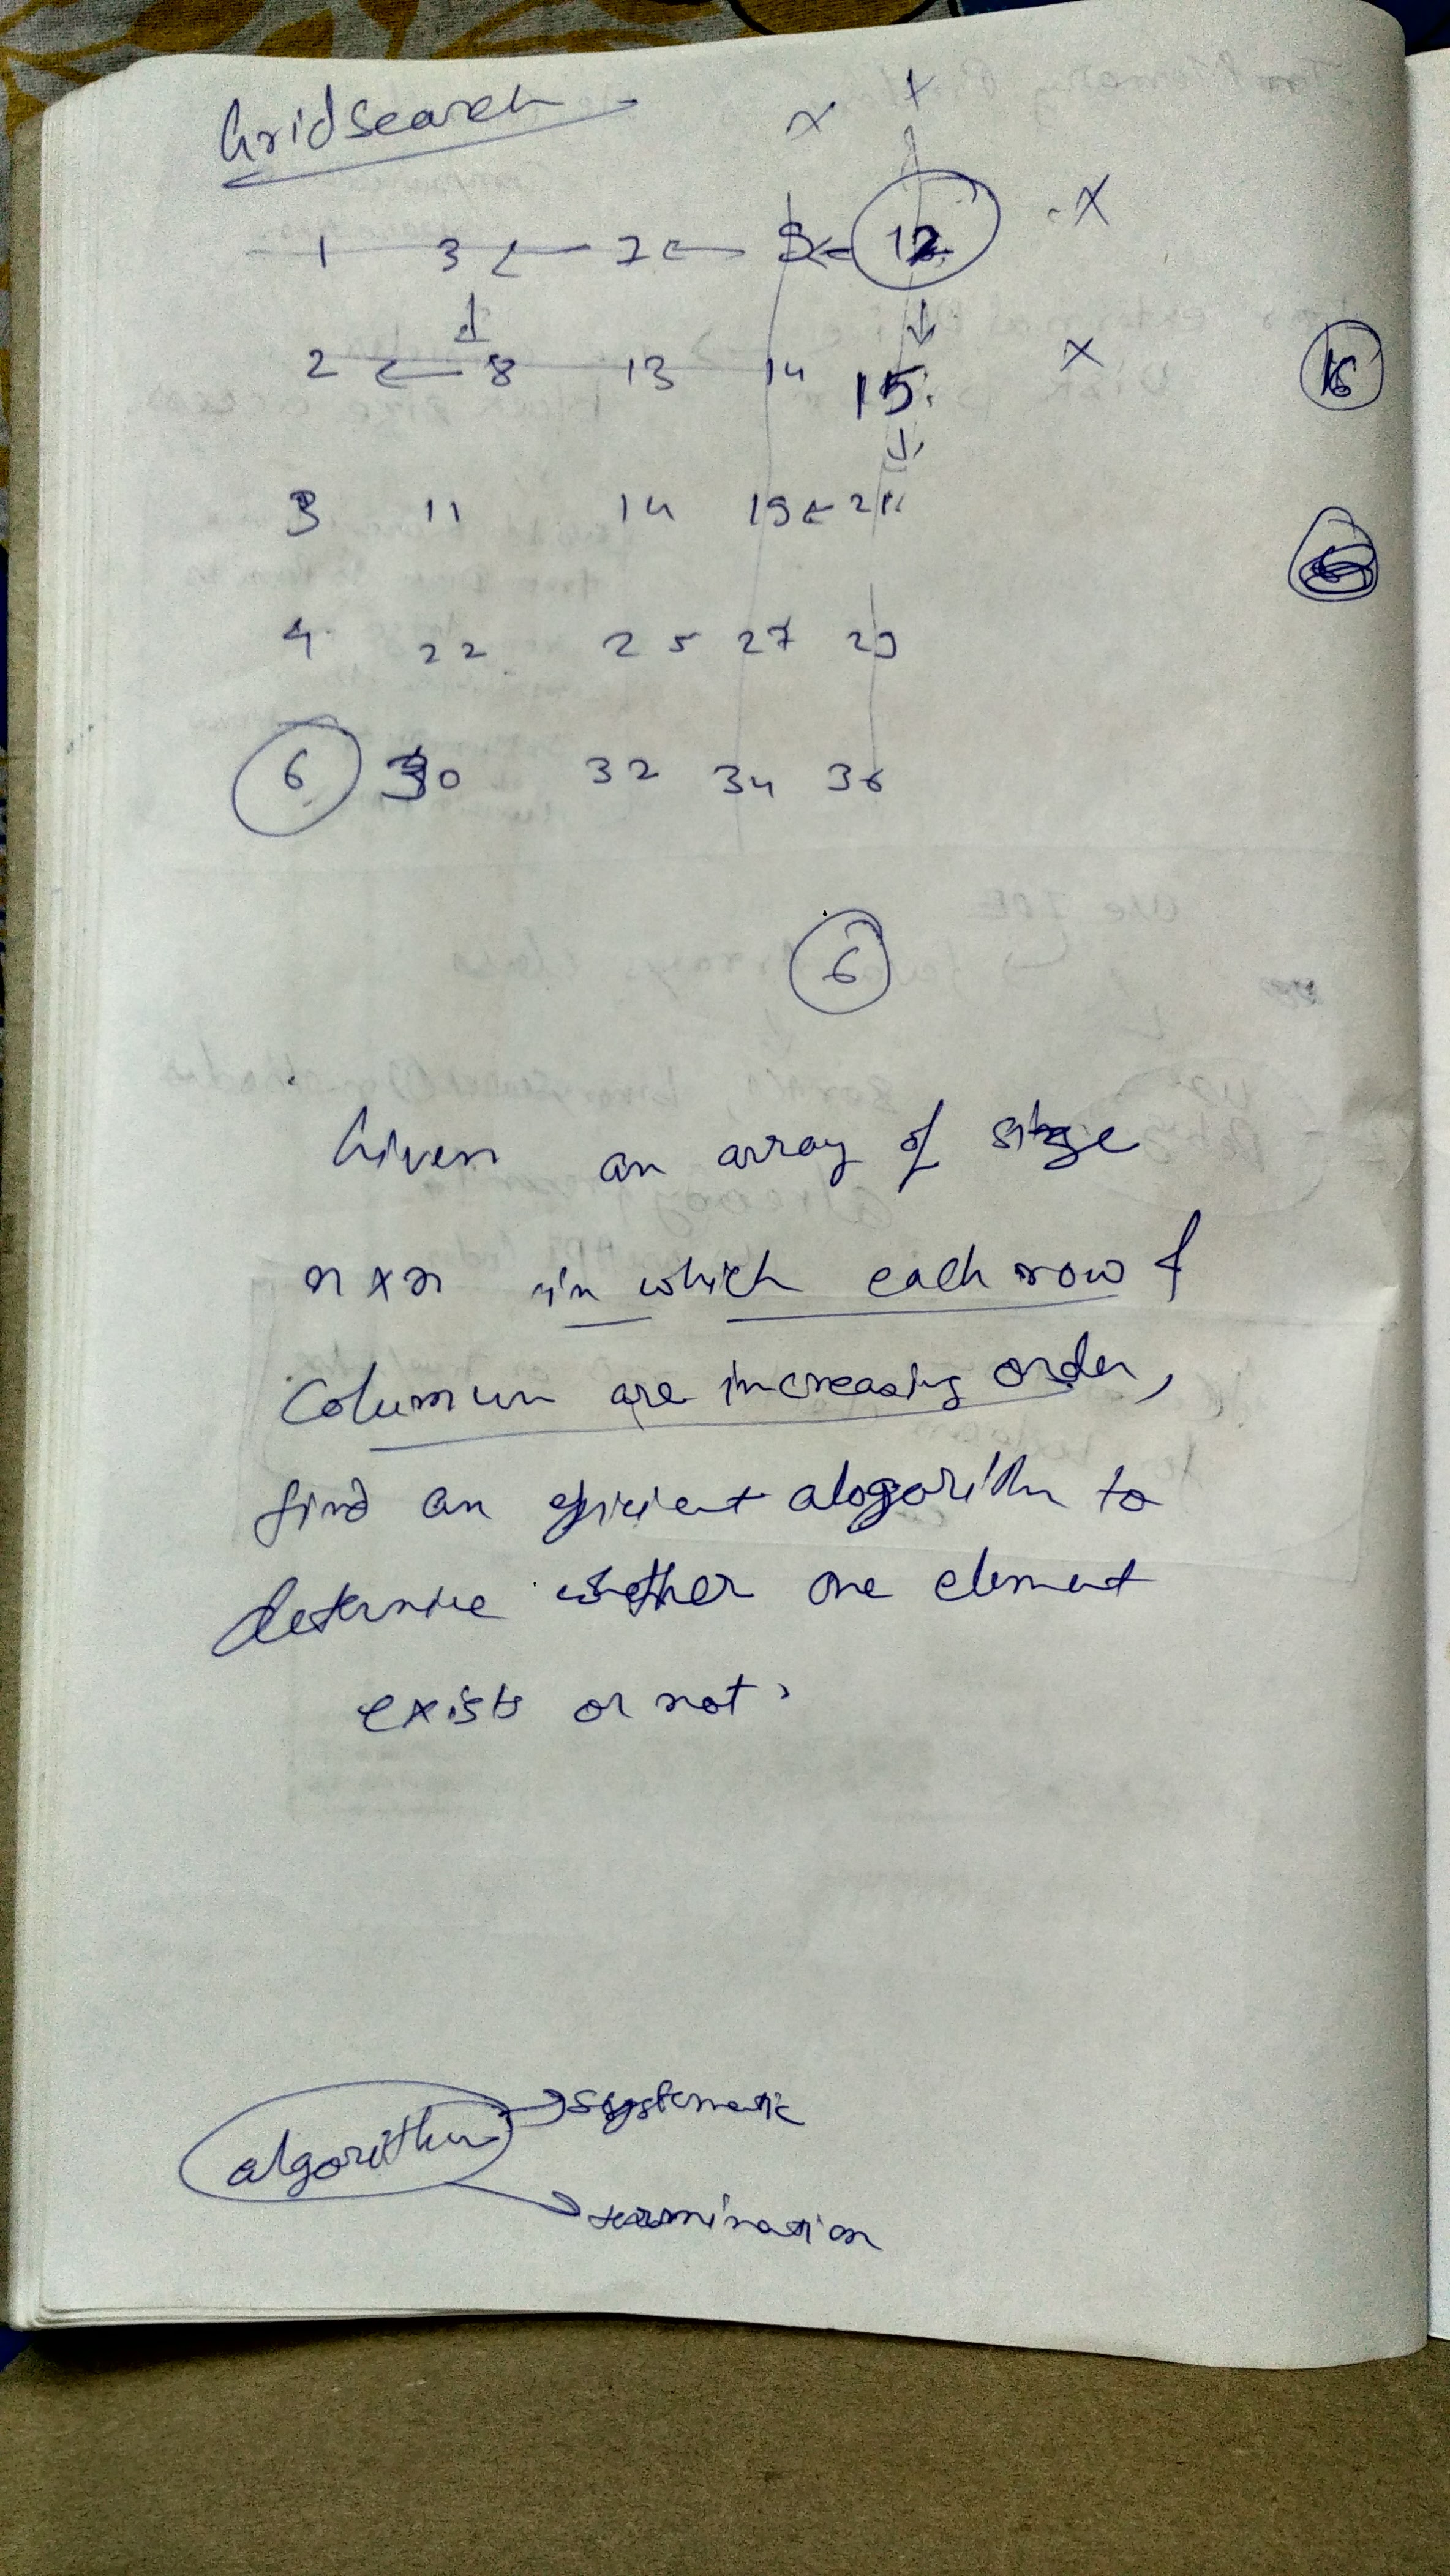 Gridsearch
x x
1 3 ← 7 ← 9 ← 12 x
↓ ↓
2 ← 8 13 14 15 x 16
↓
3 11 14 19 ← 21
4 22 25 27 29
6 30 32 34 36
6
Given an array of size
n x n in which each row &
Column are increasing order,
find an efficient alogorithm to
determine whether one element
exists or not.
algorithm → systematic
→ termination